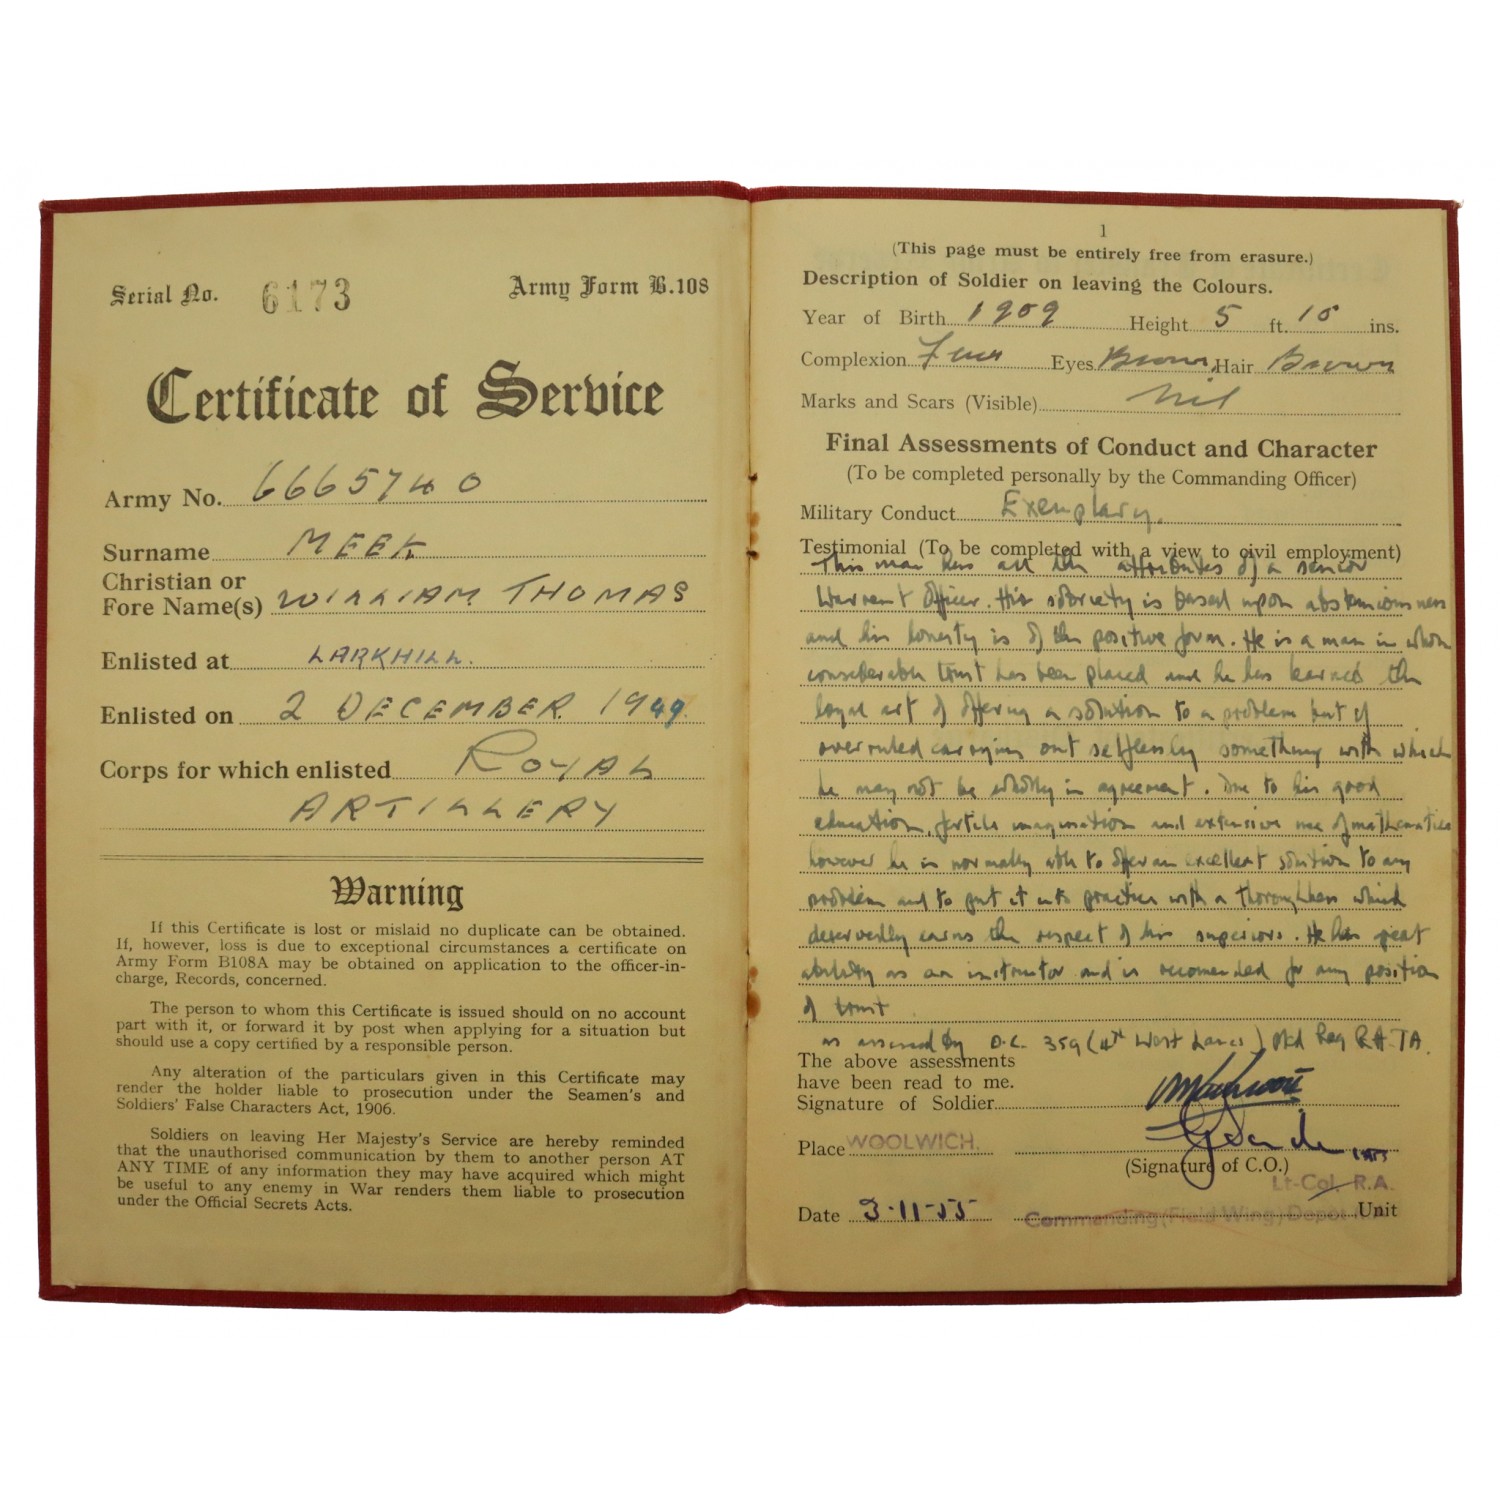 Serial No. 6173
Army Form B.108
Certificate of Service
Army No. 6665740
Surname MEEK
Christian or
Fore Name(s) WILLIAM THOMAS
Enlisted at LARKHILL.
Enlisted on 2 DECEMBER 1949.
Corps for which enlisted ROYAL
ARTILLERY
Warning
If this Certificate is lost or mislaid no duplicate can be obtained.
If, however, loss is due to exceptional circumstances a certificate on
Army Form B108A may be obtained on application to the officer-in-
charge, Records, concerned.
The person to whom this Certificate is issued should on no account
part with it, or forward it by post when applying for a situation but
should use a copy certified by a responsible person.
Any alteration of the particulars given in this Certificate may
render the holder liable to prosecution under the Seamen's and
Soldiers' False Characters Act, 1906.
Soldiers on leaving Her Majesty's Service are hereby reminded
that the unauthorised communication by them to another person AT
ANY TIME of any information they may have acquired which might
be useful to any enemy in War renders them liable to prosecution
under the Official Secrets Acts.
1
(This page must be entirely free from erasure.)
Description of Soldier on leaving the Colours.
Year of Birth 1909 Height 5 ft. 10 ins.
Complexion Eyes Brown, Hair Brown
Marks and Scars (Visible) Nil
Final Assessments of Conduct and Character
(To be completed personally by the Commanding Officer)
Military Conduct Exemplary.
Testimonial (To be completed with a view to civil employment)
This man has all the attributes of a senior
Warrant Officer. His sobriety is based upon abstemiousness
and his honesty is of the positive form. He is a man in whom
considerable trust has been placed and he has learned the
loyal art of offering a solution to a problem but if
overruled carrying out selflessly something with which
he may not be wholly in agreement. Due to his good
education, fertile imagination and extensive use of mathematics
however he is normally able to offer an excellent solution to any
problem and to put it into practice with a thoroughness which
deservedly earns the respect of his superiors. He has great
ability as an instructor and is recomended for any position
of trust
as assessed by O.C. 359 (4th West Lancs) Med Reg RA TA.
The above assessments
have been read to me.
Signature of Soldier
Place WOOLWICH.
(Signature of C.O.)
Lt-Col. R.A.
Date 3-11-55 Commanding (Field Wing) Depot Unit